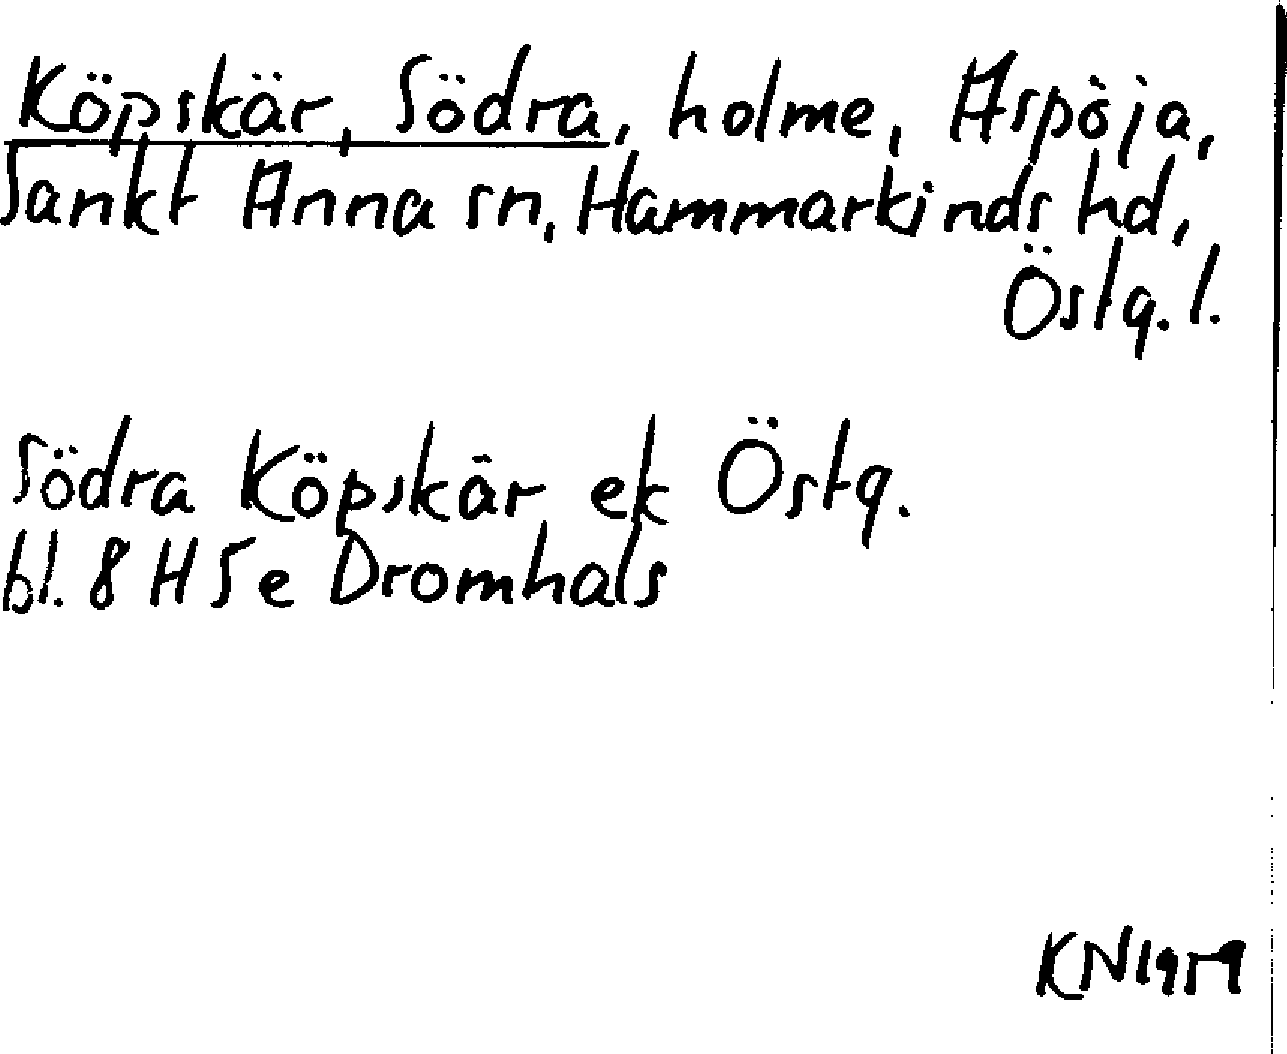 Köpskär, Södra, holme, Aspöja,
Sankt Anna sn, Hammarkinds hd,
Östg. l.
Södra Köpskär ek Östg.
bl. 8 H 5e Dromhals
KN 1959